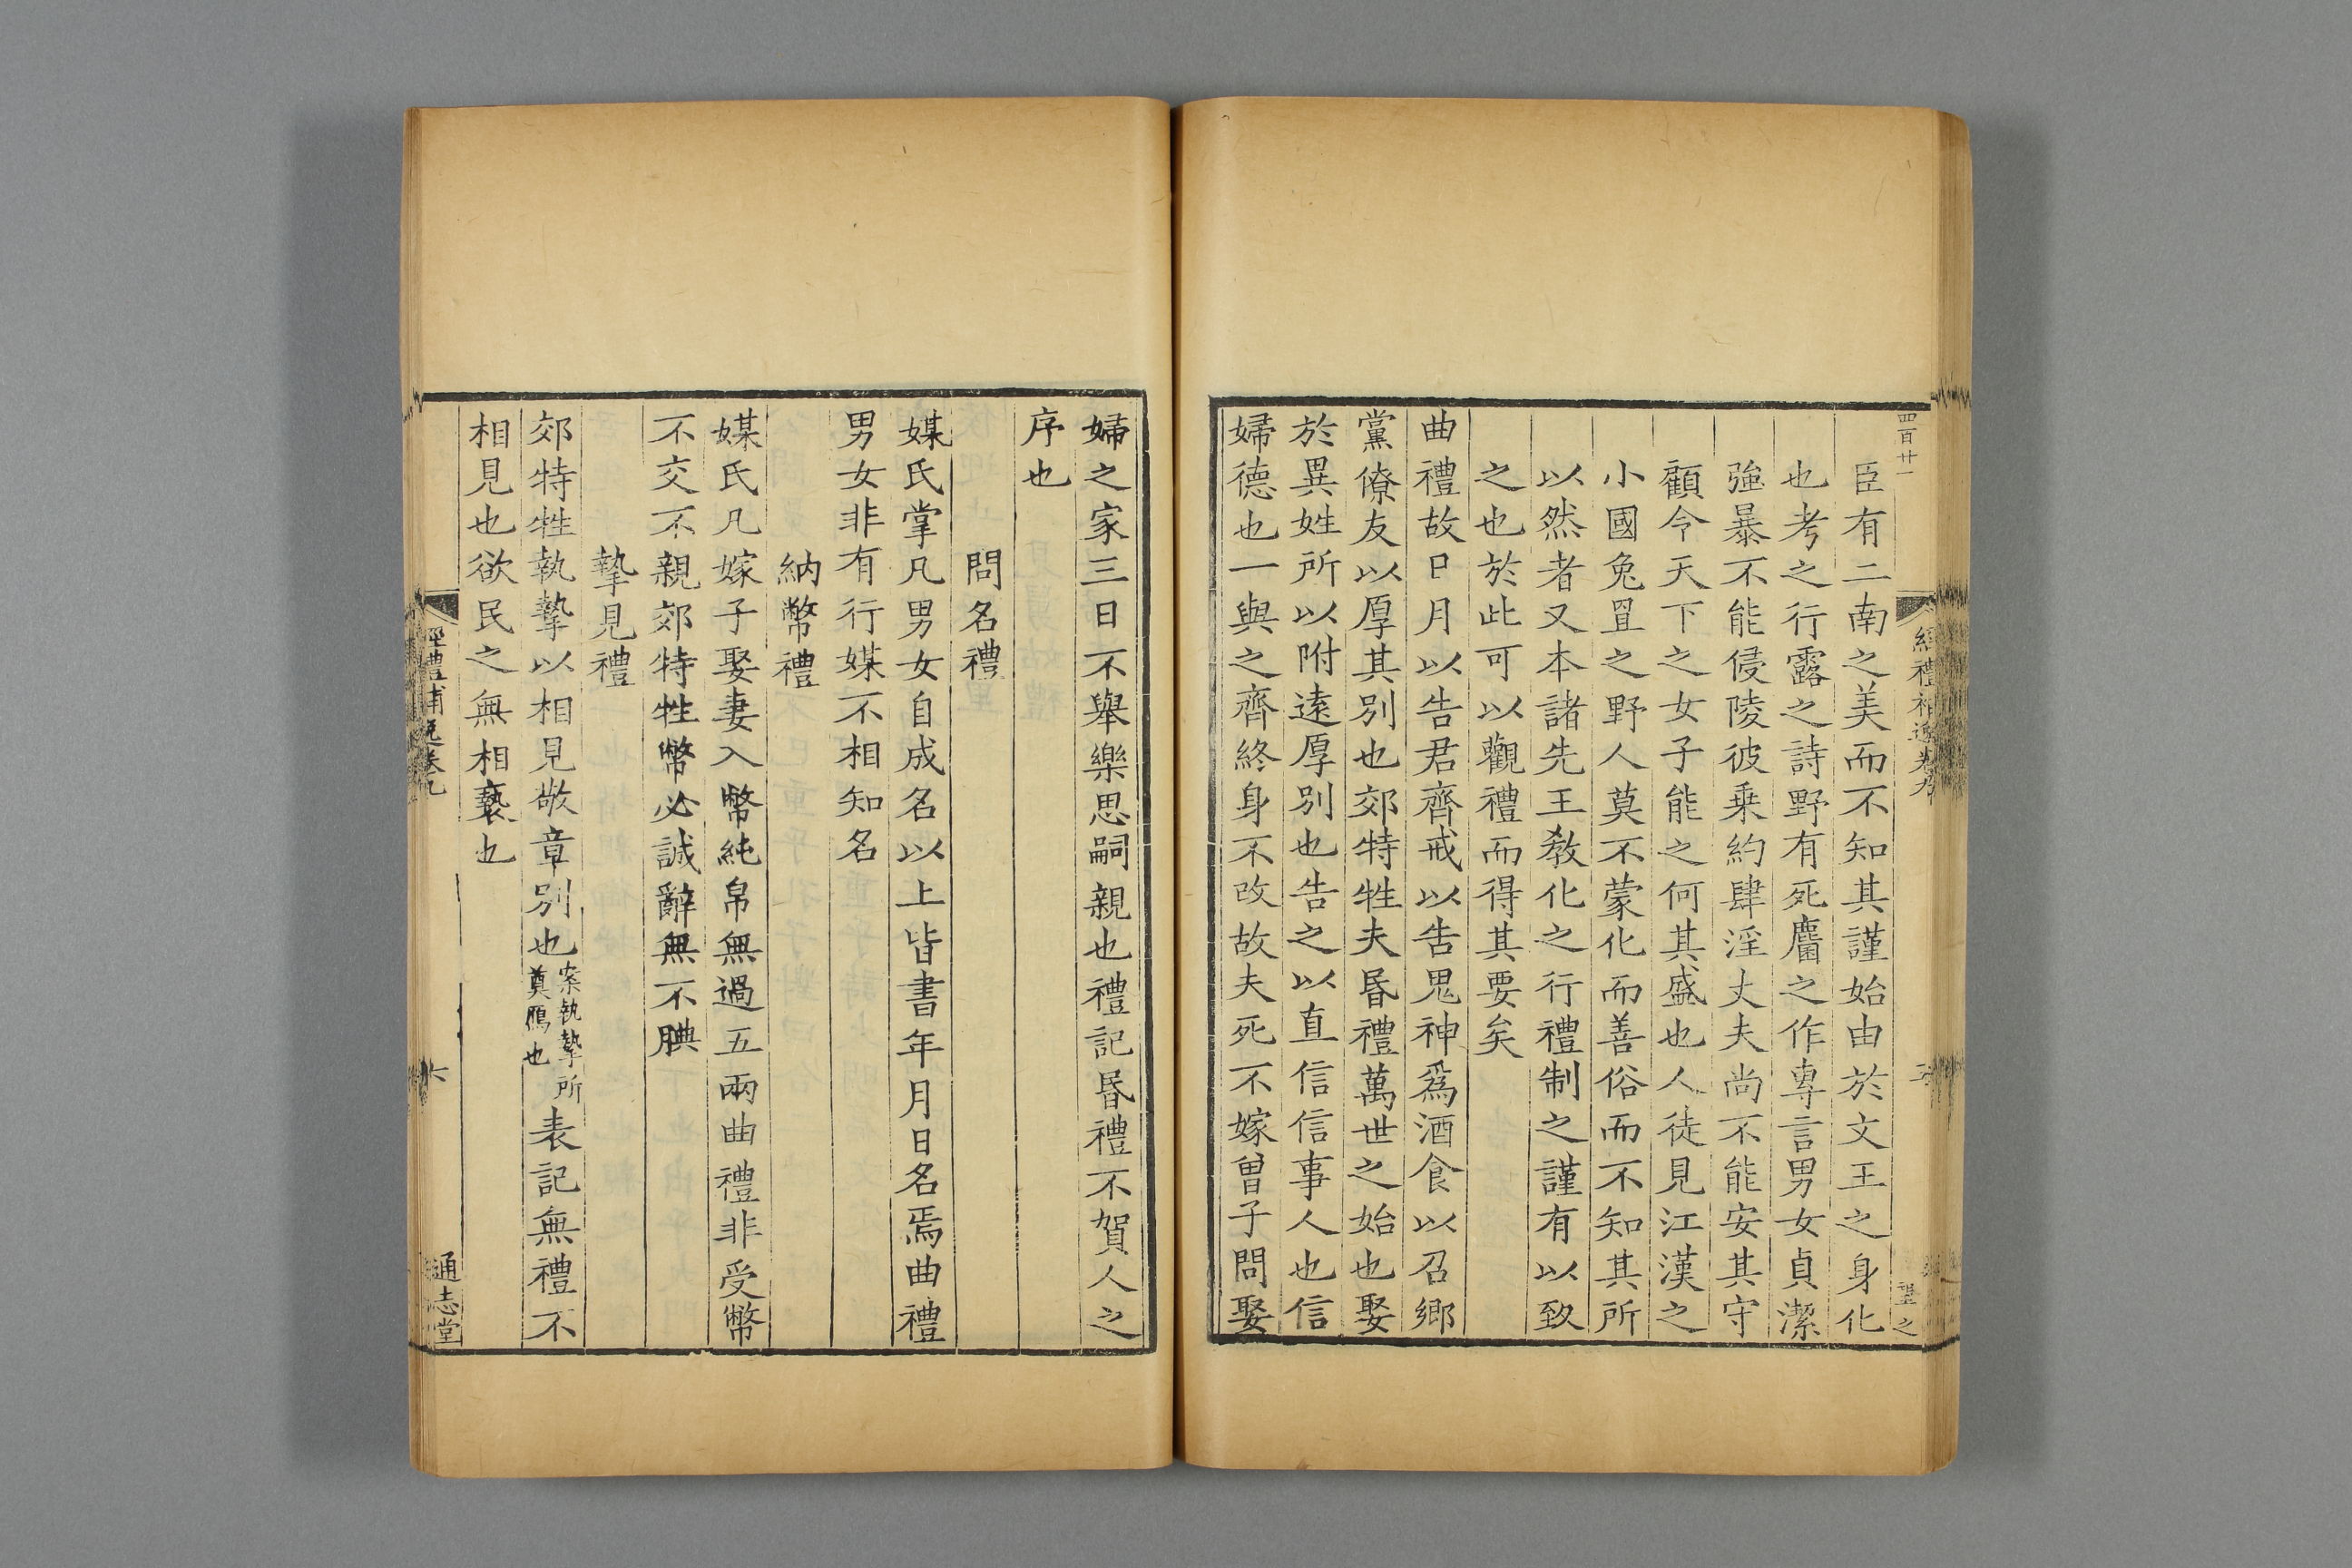 四百廿一
臣有二南之美而不知其謹始由於文王之身化
也考之行露之詩野有死麕之作專言男女貞潔
強暴不能侵陵彼乗約肆淫丈夫尚不能安其守
顧令天下之女子能之何其盛也人徒見江漢之
小國兔罝之野人莫不蒙化而善俗而不知其所
以然者又本諸先王教化之行禮制之謹有以致
之也於此可以觀禮而得其要矣
曲禮故日月以告君齊戒以告鬼神爲酒食以召鄉
黨僚友以厚其別也郊特牲夫昏禮萬世之始也娶
於異姓所以附遠厚別也告之以直信信事人也信
婦德也一與之齊終身不改故夫死不嫁曾子問娶
婦之家三日不舉樂思嗣親也禮記昏禮不賀人之
序也
問名禮
媒氏掌凡男女自成名以上皆書年月日名焉曲禮
男女非有行媒不相知名
納幣禮
媒氏凡嫁子娶妻入幣純帛無過五兩曲禮非受幣
不交不親郊特牲幣必誠辭無不腆
摯見禮
郊特牲執摯以相見敬章別也案執摯所奠鴈也表記無禮不
相見也欲民之無相褻也
經禮補逸卷九
六
通志堂